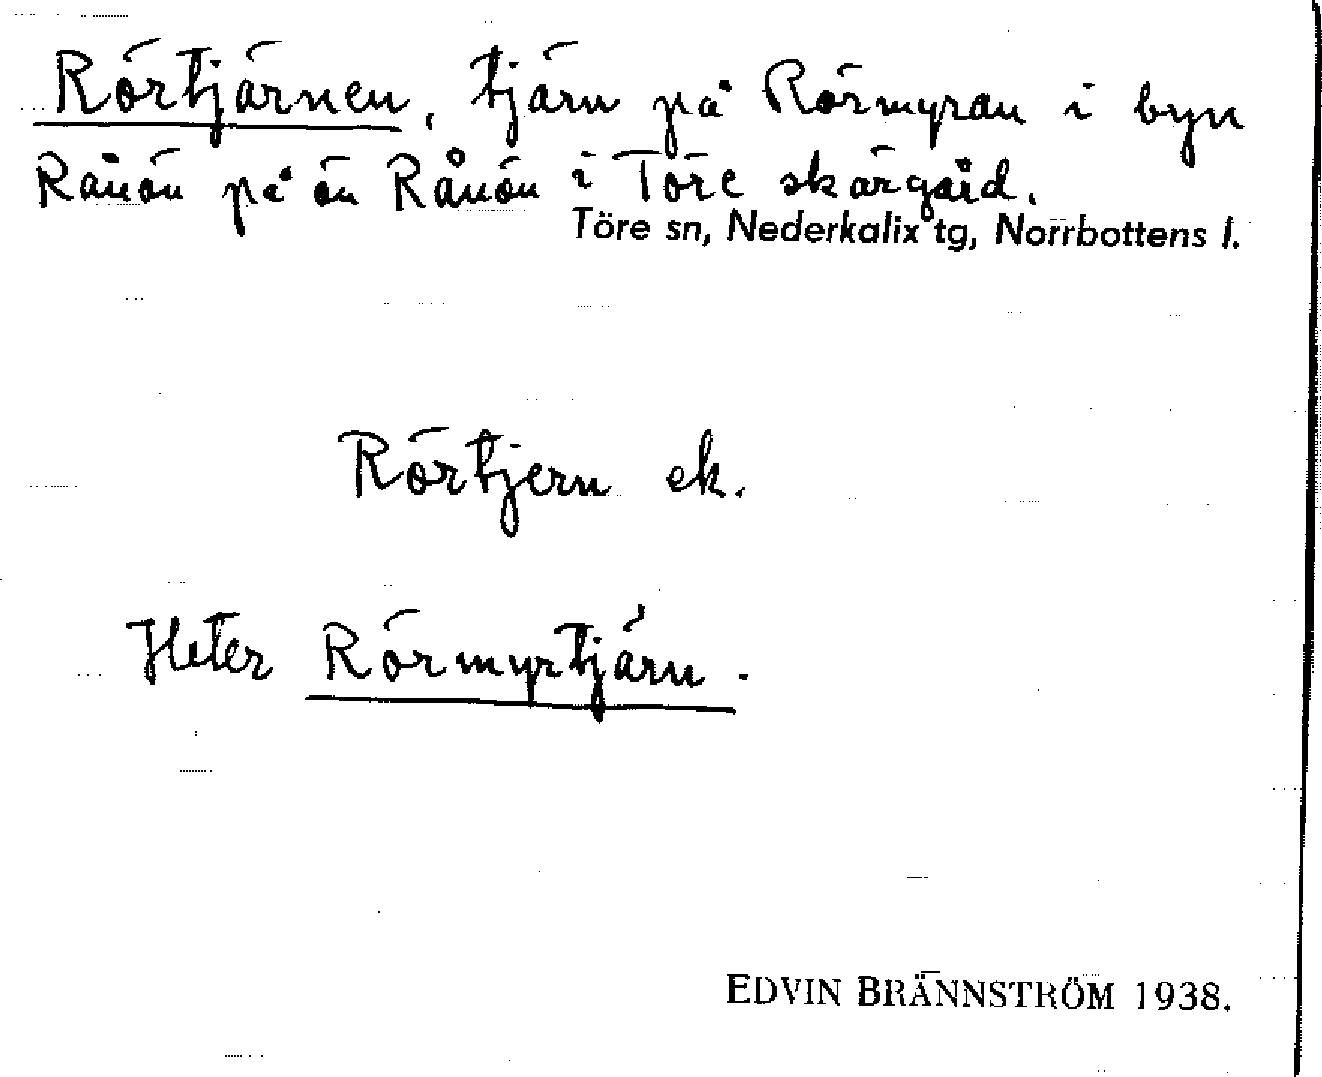 Rörtjärnen, tjärn på Rörmyran i byn
Rånön på ön Rånön i Töre skärgård.
Töre sn, Nederkalix tg, Norrbottens l.
Rörtjern ek.
Heter Rörmyrtjärn.
EDVIN BRÄNNSTRÖM 1938.